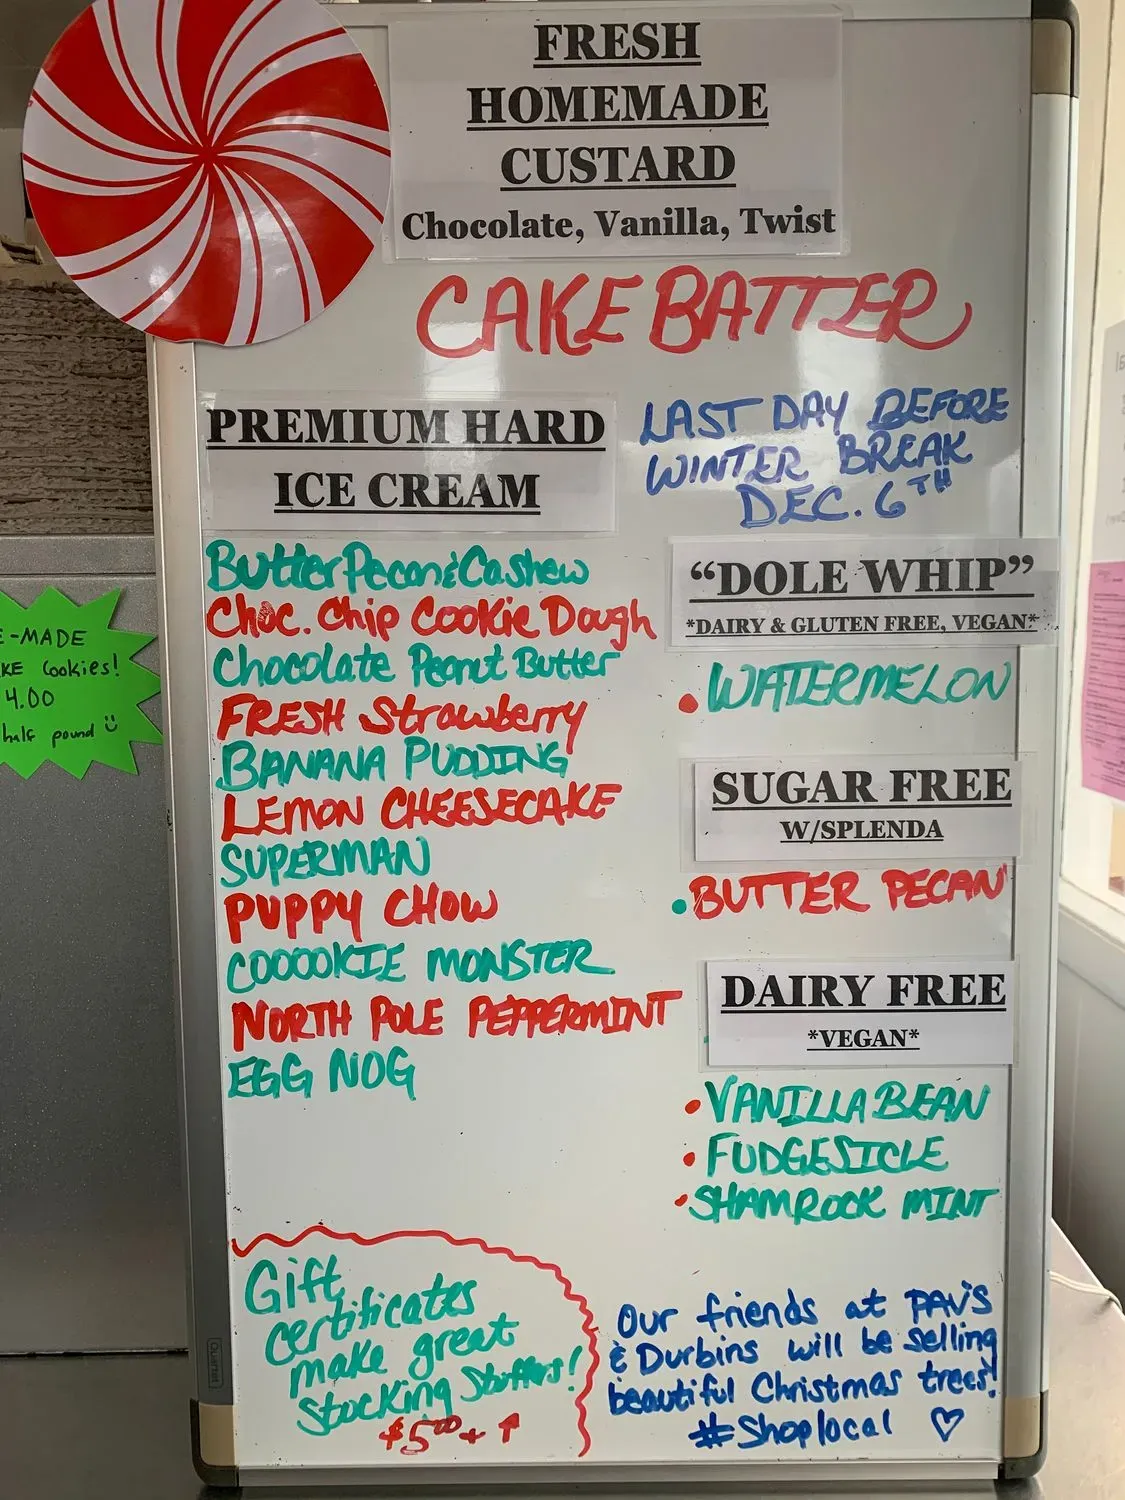 FRESH
HOMEMADE
CUSTARD
Chocolate, Vanilla, Twist
CAKE BATTER
PREMIUM HARD
ICE CREAM
Butter Pecan & Cashew
Choc. Chip Cookie Dough
Chocolate Peanut Butter
FRESH Strawberry
BANANA PUDDING
LEMON CHEESECAKE
SUPERMAN
PUPPY CHOW
COOOOKIE MONSTER
NORTH POLE PEPPERMINT
EGG NOG
LAST DAY BEFORE
WINTER BREAK
DEC. 6TH
"DOLE WHIP"
*DAIRY & GLUTEN FREE, VEGAN*
• WATERMELON
SUGAR FREE
W/SPLENDA
• BUTTER PECAN
DAIRY FREE
*VEGAN*
• VANILLA BEAN
• FUDGESICLE
• SHAMROCK MINT
Gift
certificates
make great
Stocking Stuffers!
$5.00 + ↑
Our friends at PAV'S
& Durbins will be selling
beautiful Christmas trees!
#Shoplocal ♡
E-MADE
KE Cookies!
4.00
half pound
Quartet